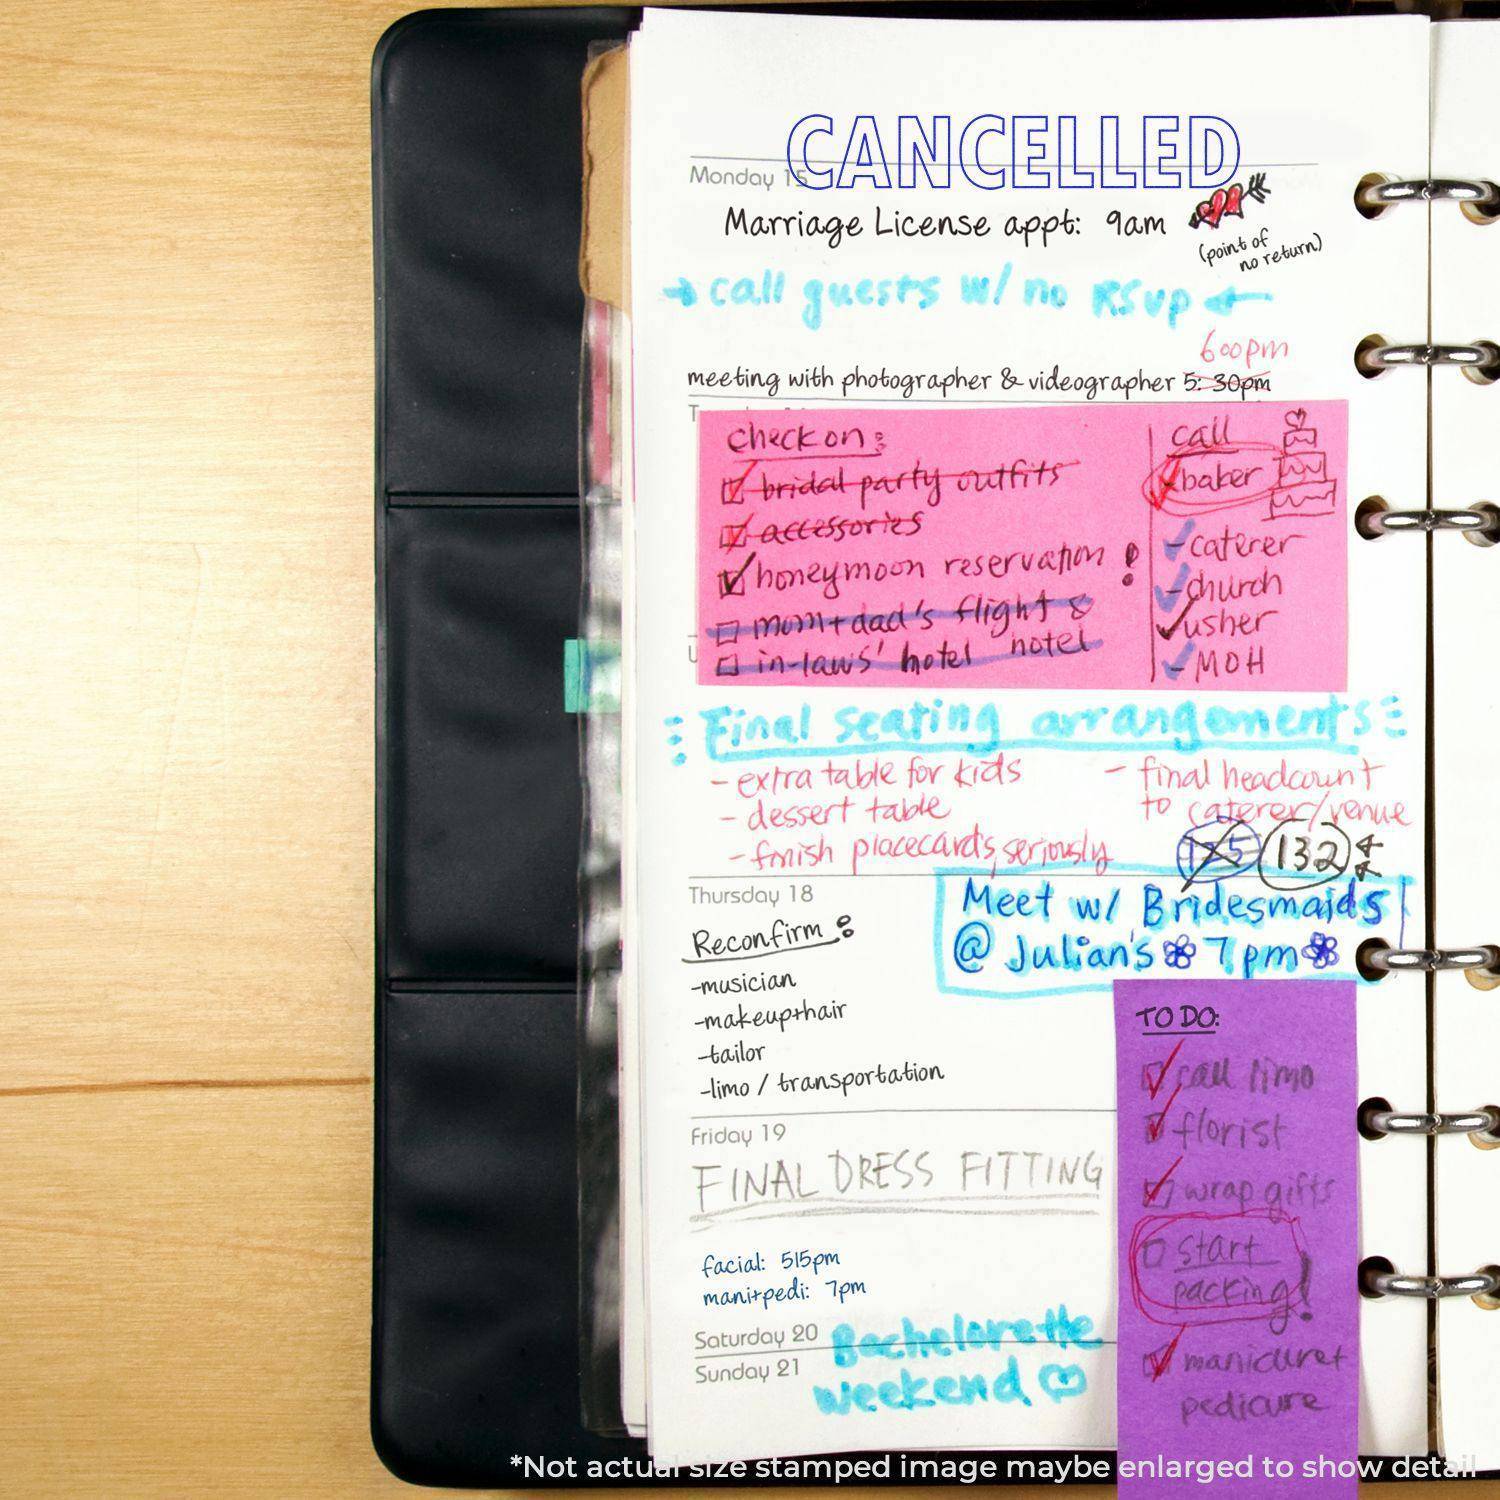 CANCELLED
Monday 15
Marriage License appt: 9am
(point of
no return)
→ call guests w/ no RSVP ←
600pm
meeting with photographer & videographer 5:30pm
check on:
bridal party outfits
accessories
honeymoon reservation!
mom+dad's flight &
hotel
in-laws' hotel
call
-baker
-caterer
-church
usher
-MOH
Final seating arrangements
- extra table for kids
- dessert table
- finish placecards, seriously
- final headcount
to caterer/venue
125 132
Thursday 18
Reconfirm:
-musician
-makeup+hair
-tailor
-limo / transportation
Meet w/ Bridesmaids
@ Julian's 7pm
TO DO:
call limo
florist
wrap gifts
start
packing!
manicure+
pedicure
Friday 19
FINAL DRESS FITTING
facial: 515pm
mani+pedi: 7pm
Saturday 20
Sunday 21
Bachelorette
weekend
*Not actual size stamped image maybe enlarged to show detail